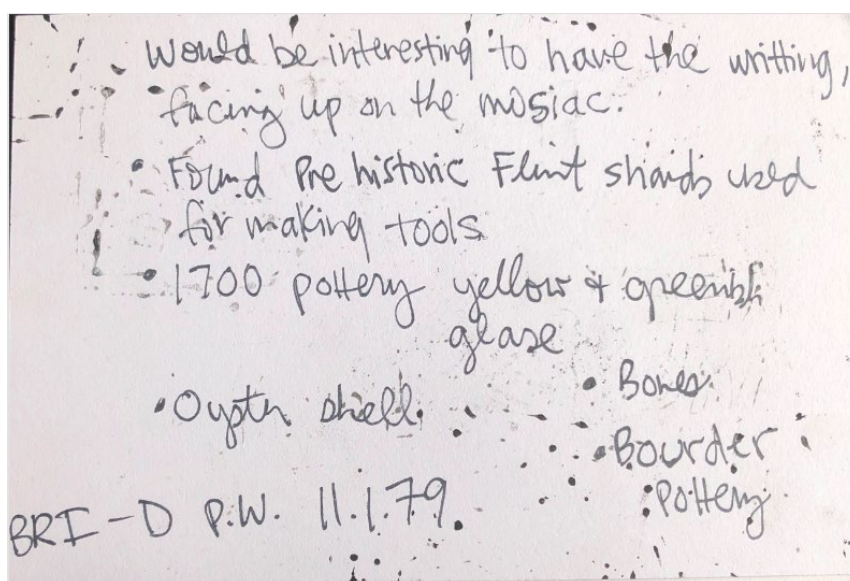 Would be interesting to have the writting,
facing up on the mosiac.
• Found Pre historic Flint shards used
for making tools
• 1700 pottery yellow + greenish
glase
• Oyster shell.
• Bones.
• Bourder
Pottery
BRI-D P.W. 11.1.79.